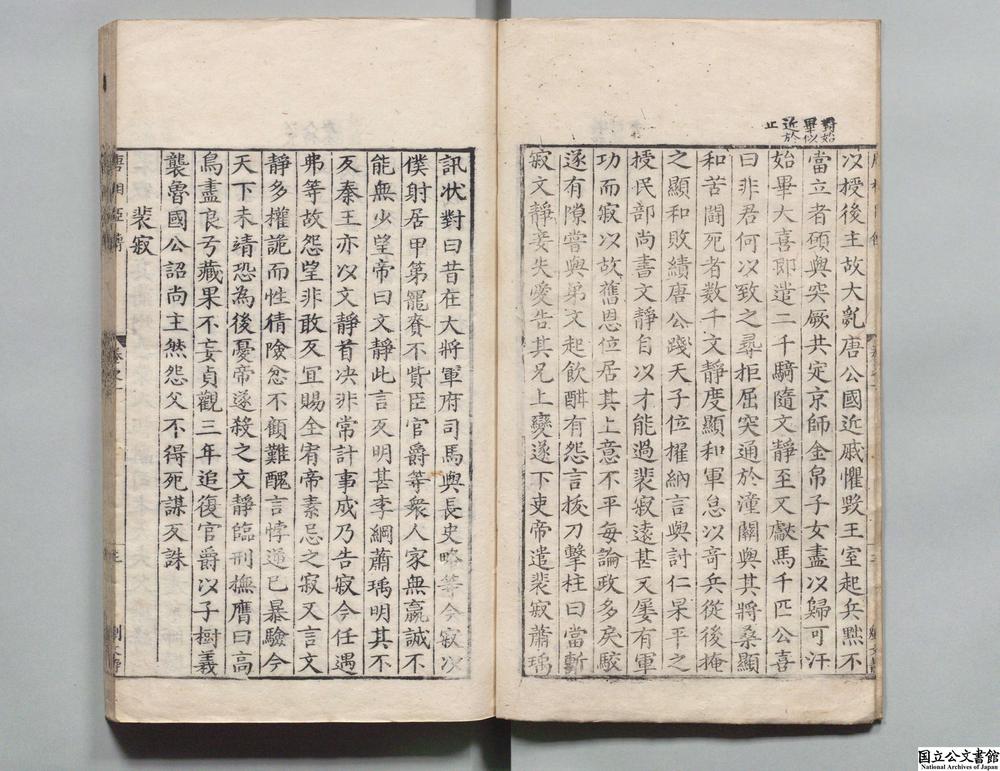 對始
畢似
近於
止
以授後主故大亂唐公國近戚懼毀王室起兵黜不
當立者碩與突厥共定京師金帛子女盡以歸可汗
始畢大喜即遣二千騎隨文靜至又獻馬千匹公喜
曰非君何以致之尋拒屈突通於潼關與其將桑顯
和苦鬪死者数千文靜度顯和軍怠以奇兵從後掩
之顯和敗績唐公踐天子位擢納言與討仁杲平之
授民部尚書文靜自以才能過裴寂遠甚又屢有軍
功而寂以故舊恩位居其上意不平每論政多戾駮
遂有隙嘗與弟文起飲酣有怨言拔刀擊柱曰當斬
寂文靜妾失愛告其兄上變遂下吏帝遣裴寂蕭瑀
訊狀對曰昔在大將軍府司馬與長史略等今寂以
僕射居甲第罷賚不貲臣官爵等衆人家無贏誠不
能無少望帝曰文靜此言反明甚李綱蕭瑀明其不
反秦王亦以文靜首决非常計事成乃告寂今任遇
弗等故怨望非敢反冝賜全宥帝素忌之寂又言文
靜多權詭而性猜險忿不顧難醜言悖逆已暴驗今
天下未靖恐為後憂帝遂殺之文靜臨刑撫膺曰高
鳥盡良弓藏果不妄貞觀三年追復官爵以子樹義
襲魯國公詔尚主然怨父不得死謀反誅
裴寂